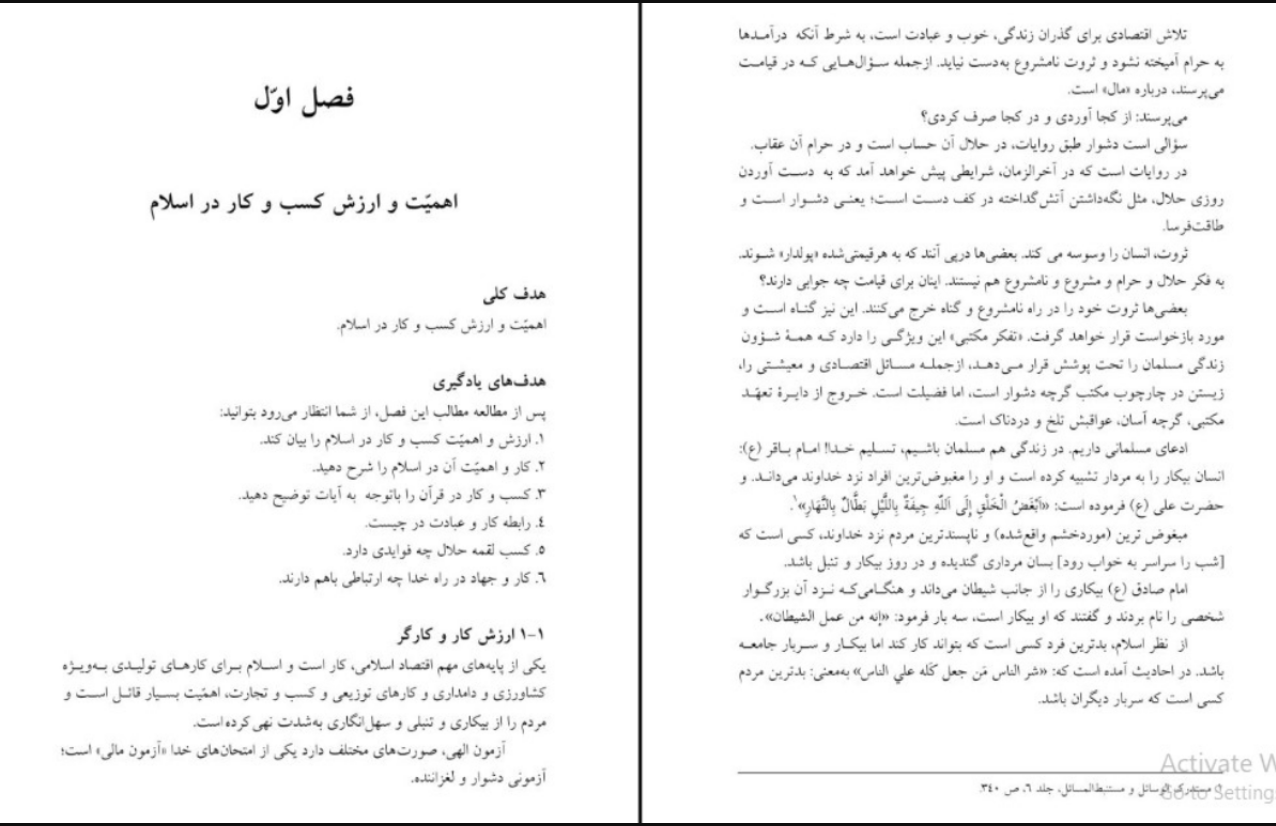 فصل اوّل
اهمیّت و ارزش کسب و کار در اسلام
هدف کلی
اهمیّت و ارزش کسب و کار در اسلام.
هدف‌های یادگیری
پس از مطالعه مطالب این فصل، از شما انتظار می‌رود بتوانید:
۱. ارزش و اهمیّت کسب و کار در اسلام را بیان کند.
۲. کار و اهمیّت آن در اسلام را شرح دهید.
۳. کسب و کار در قرآن را باتوجه به آیات توضیح دهید.
٤. رابطه کار و عبادت در چیست.
٥. کسب لقمه حلال چه فوایدی دارد.
٦. کار و جهاد در راه خدا چه ارتباطی باهم دارند.
۱-۱ ارزش کار و کارگر
یکی از پایه‌های مهم اقتصاد اسلامی، کار است و اسـلام بـرای کارهـای تولیـدی بـه‌ویـژه
کشاورزی و دامداری و کارهای توزیعی و کسب و تجارت، اهمّیت بسـیار قائـل اسـت و
مردم را از بیکاری و تنبلی و سهل‌انگاری به‌شدت نهی کرده است.
آزمون الهی، صورت‌های مختلف دارد یکی از امتحان‌های خدا «آزمون مالی» است؛
آزمونی دشوار و لغزاننده.
تلاش اقتصادی برای گذران زندگی، خوب و عبادت است، به شرط آنکه درآمـدها
به حرام آمیخته نشود و ثروت نامشروع به‌دست نیاید. ازجمله سـؤال‌هـایی کـه در قیامـت
می‌پرسند، درباره «مال» است.
می‌پرسند: از کجا آوردی و در کجا صرف کردی؟
سؤالی است دشوار طبق روایات، در حلال آن حساب است و در حرام آن عقاب.
در روایات است که در آخرالزمان، شرایطی پیش خواهد آمد که به دسـت آوردن
روزی حلال، مثل نگه‌داشتن آتش گداخته در کف دسـت اسـت؛ یعنـی دشـوار اسـت و
طاقت‌فرسا.
ثروت، انسان را وسوسه می کند. بعضی‌ها درپی آنند که به هرقیمتی‌شده «پولدار» شـوند.
به فکر حلال و حرام و مشروع و نامشروع هم نیستند. اینان برای قیامت چه جوابی دارند؟
بعضی‌ها ثروت خود را در راه نامشروع و گناه خرج می‌کنند. این نیز گنـاه اسـت و
مورد بازخواست قرار خواهد گرفت. «تفکر مکتبی» این ویژگـی را دارد کـه همـۀ شـؤون
زندگی مسلمان را تحت پوشش قرار مـی‌دهـد، ازجملـه مسـائل اقتصـادی و معیشـتی را،
زیستن در چارچوب مکتب گرچه دشوار است، اما فضیلت است. خـروج از دایـرۀ تعهّـد
مکتبی، گرچه آسان، عواقبش تلخ و دردناک است.
ادعای مسلمانی داریم. در زندگی هم مسلمان باشـیم، تسـلیم خـدا! امـام بـاقر (ع):
انسان بیکار را به مردار تشبیه کرده است و او را مغبوض‌ترین افراد نزد خداوند می‌دانـد. و
حضرت علی (ع) فرموده است: «اَبْغَضُ الْخَلْقِ إِلَی اَللّهِ جِیفَةٌ بِاللَّیْلِ بَطَّالٌ بِالنَّهَارِ»۱.
مبغوض ترین (موردخشم واقع‌شده) و ناپسندترین مردم نزد خداوند، کسی است که
[شب را سراسر به خواب رود] بسان مرداری گندیده و در روز بیکار و تنبل باشد.
امام صادق (ع) بیکاری را از جانب شیطان می‌داند و هنگـامی‌کـه نـزد آن بزرگـوار
شخصی را نام بردند و گفتند که او بیکار است، سه بار فرمود: «إنه من عمل الشیطان».
از نظر اسلام، بدترین فرد کسی است که بتواند کار کند اما بیکـار و سـربار جامعـه
باشد. در احادیث آمده است که: «شر الناس مَن جعل کَله علي الناس» به‌معنی: بدترین مردم
کسی است که سربار دیگران باشد.
۱. مستدرک الوسائل و مستنبط‌المسائل، جلد ٦، ص ۳٤۰.
Activate W
Go to Setting